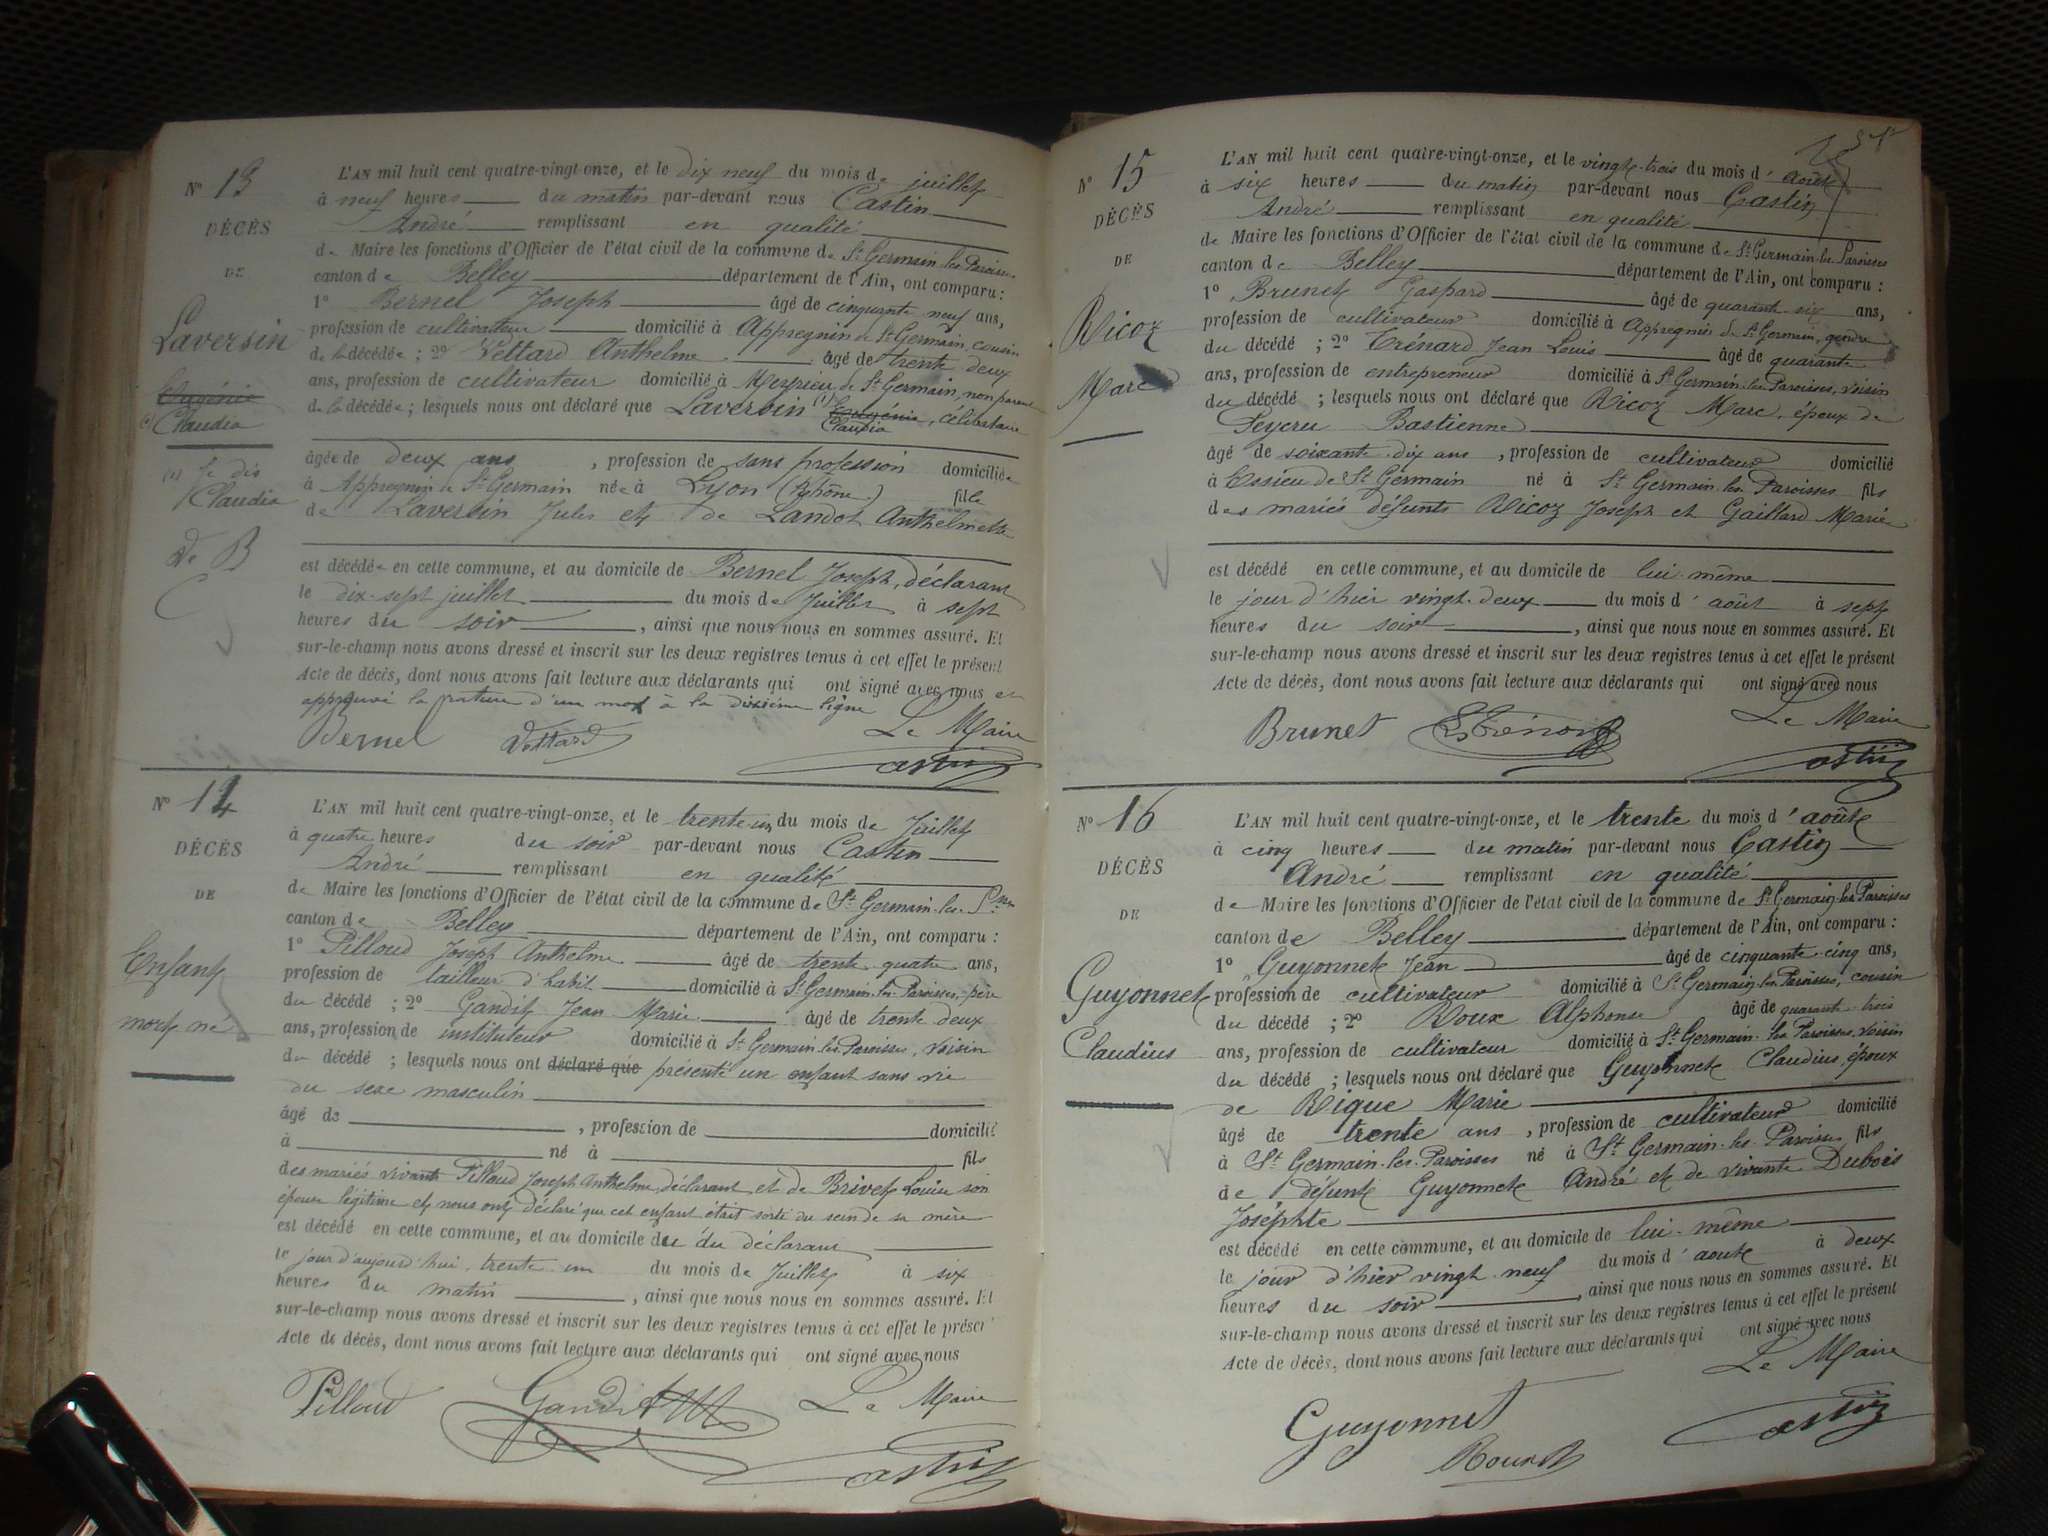 N° 13
DÉCÈS
DE
Laversin
Eugénie
Claudia
(1) Je dis
Claudia
De B
L'AN mil huit cent quatre-vingt-onze, et le dix neuf du mois de juillet
à neuf heures du matin par-devant nous Castin
André remplissant en qualité
de Maire les fonctions d'Officier de l'état civil de la commune de St Germain-les-Paroisses
canton de Belley département de l'Ain, ont comparu :
1° Bernel Joseph âgé de cinquante neuf ans,
profession de cultivateur domicilié à Appregnin de St Germain, cousin
de la décédée ; 2° Vettard Anthelme âgé de trente deux
ans, profession de cultivateur domicilié à Meyrieu de St Germain, non parent
de la décédée ; lesquels nous ont déclaré que Laversin (1) Eugénie, célibataire
Claudia
âgée de deux ans , profession de sans profession domiciliée
à Appregnin de St Germain née à Lyon (Rhône) fille
de Laversin Jules et de Landot Anthelmette
est décédée en cette commune, et au domicile de Bernel Joseph, déclarant
le dix-sept juillet du mois de Juillet à sept
heures du soir , ainsi que nous nous en sommes assuré. Et
sur-le-champ nous avons dressé et inscrit sur les deux registres tenus à cet effet le présent
Acte de décès, dont nous avons fait lecture aux déclarants qui ont signé avec nous et
approuvé la rature d'un mot à la dixième ligne
Le Maire
Bernel Vettard Castin
N° 14
DÉCÈS
DE
Enfant
mort né
L'AN mil huit cent quatre-vingt-onze, et le trente-un du mois de Juillet
à quatre heures du soir par-devant nous Castin
André remplissant en qualité
de Maire les fonctions d'Officier de l'état civil de la commune de St Germain-les-
canton de Belley département de l'Ain, ont comparu :
1° Pilloud Joseph Anthelme âgé de trente quatre ans,
profession de tailleur d'habit domicilié à St Germain-les-Paroisses, père
du décédé ; 2° Gandit Jean Marie âgé de trente deux
ans, profession de instituteur domicilié à St Germain-les-Paroisses, voisin
du décédé ; lesquels nous ont déclaré que présenté un enfant sans vie
du sexe masculin
âgé de , profession de domicilié
à né à fils
des mariés vivants Pilloud Joseph Anthelme, déclarant et de Brivet Louise son
épouse légitime et nous ont déclaré que cet enfant était sorti du sein de sa mère
est décédé en cette commune, et au domicile du du déclarant
le jour d'aujourd'hui, trente-un du mois de Juillet à six
heures du matin , ainsi que nous nous en sommes assuré. Et
sur-le-champ nous avons dressé et inscrit sur les deux registres tenus à cet effet le présent
Acte de décès, dont nous avons fait lecture aux déclarants qui ont signé avec nous
Pilloud Gandit JM Le Maire
Castin
N° 15
DÉCÈS
DE
Ricoz
Marc
L'AN mil huit cent quatre-vingt-onze, et le vingt-trois du mois d'août
à six heures du matin par-devant nous Castin
André remplissant en qualité
de Maire les fonctions d'Officier de l'état civil de la commune de St Germain-les-Paroisses
canton de Belley département de l'Ain, ont comparu :
1° Brunet Gaspard âgé de quarante-six ans,
profession de cultivateur domicilié à Appregnin de St Germain, gendre
du décédé ; 2° Trénard Jean Louis âgé de quarante
ans, profession de entrepreneur domicilié à St Germain-les-Paroisses, voisin
du décédé ; lesquels nous ont déclaré que Ricoz Marc, époux de
Peycru Bastienne
âgé de soixante-dix ans , profession de cultivateur domicilié
à Essieu de St Germain né à St Germain-les-Paroisses fils
des mariés défunts Ricoz Joseph et Gaillard Marie
est décédé en cette commune, et au domicile de lui-même
le jour d'hier vingt-deux du mois d'août à sept
heures du soir , ainsi que nous nous en sommes assuré. Et
sur-le-champ nous avons dressé et inscrit sur les deux registres tenus à cet effet le présent
Acte de décès, dont nous avons fait lecture aux déclarants qui ont signé avec nous
Le Maire
Brunet Trénard Castin
N° 16
DÉCÈS
DE
Guyonnet
Claudius
L'AN mil huit cent quatre-vingt-onze, et le trente du mois d'août
à cinq heures du matin par-devant nous Castin
André remplissant en qualité
de Maire les fonctions d'Officier de l'état civil de la commune de St Germain-les-Paroisses
canton de Belley département de l'Ain, ont comparu :
1° Guyonnet Jean âgé de cinquante-cinq ans,
profession de cultivateur domicilié à St Germain-les-Paroisses, cousin
du décédé ; 2° Roux Alphonse âgé de quarante-trois
ans, profession de cultivateur domicilié à St Germain-les-Paroisses, voisin
du décédé ; lesquels nous ont déclaré que Guyonnet Claudius, époux
de Rique Marie
âgé de trente ans , profession de cultivateur domicilié
à St Germain-les-Paroisses né à St Germain-les-Paroisses fils
de défunt Guyonnet André et de vivante Dubois
Joséphte
est décédé en cette commune, et au domicile de lui-même
le jour d'hier vingt-neuf du mois d'août à deux
heures du soir , ainsi que nous nous en sommes assuré. Et
sur-le-champ nous avons dressé et inscrit sur les deux registres tenus à cet effet le présent
Acte de décès, dont nous avons fait lecture aux déclarants qui ont signé avec nous
Le Maire
Guyonnet Castin
Roux